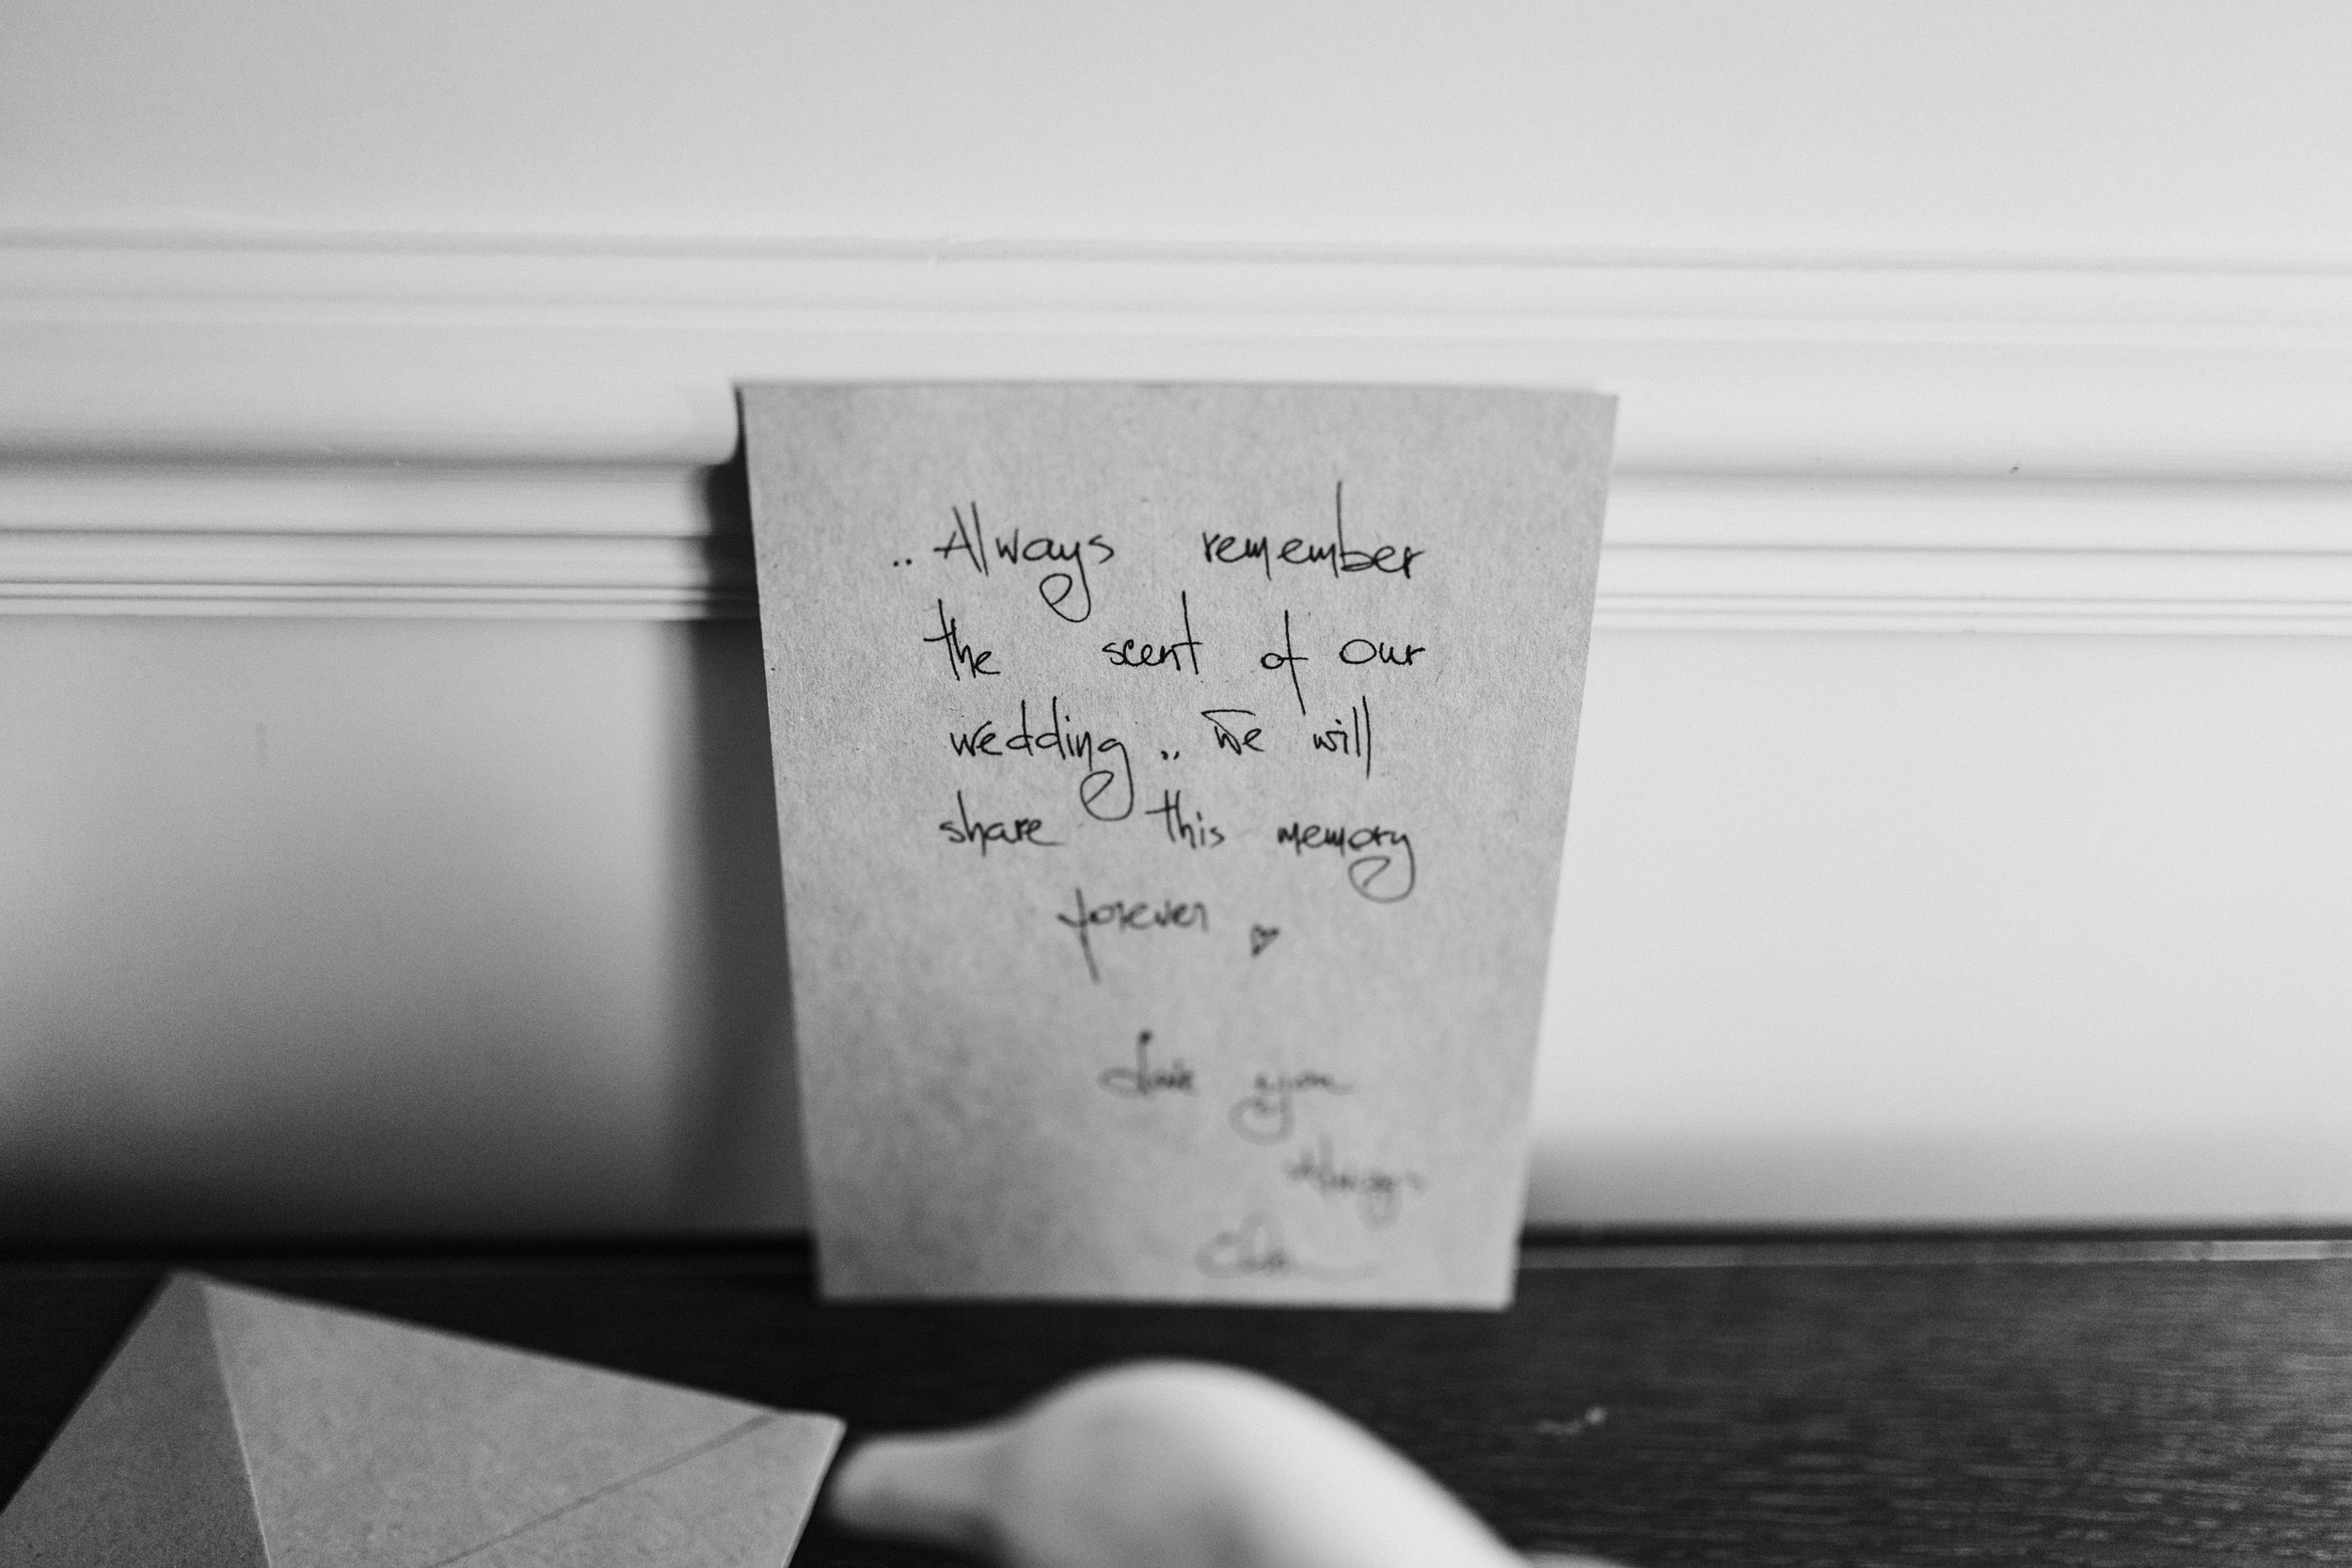 .. Always remember
the scent of our
wedding .. We will
share this memory
forever ♥
you
Always